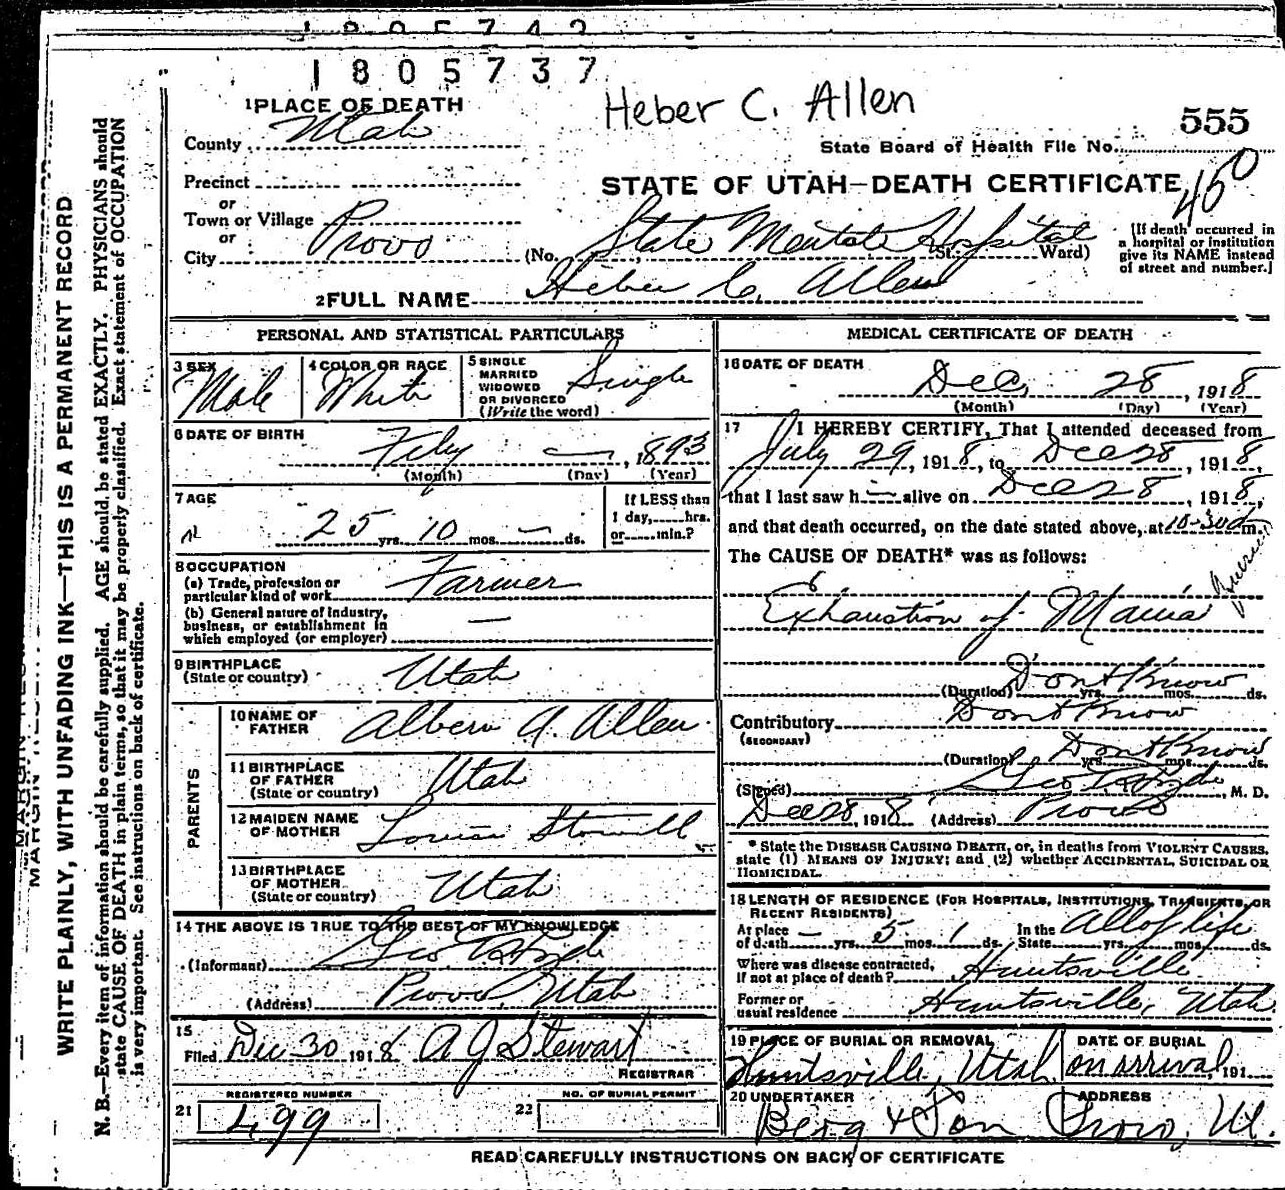 1805737
Heber C. Allen
555
State Board of Health File No.
450
STATE OF UTAH—DEATH CERTIFICATE
1 PLACE OF DEATH
County Utah
Precinct
or
Town or Village
or
City Provo
(No. State Mental Hospital St.; Ward)
[If death occurred in
a hospital or institution
give its NAME instead
of street and number.]
2 FULL NAME Heber C. Allen
PERSONAL AND STATISTICAL PARTICULARS
3 SEX
Male
4 COLOR OR RACE
White
5 SINGLE
MARRIED
WIDOWED
OR DIVORCED
(Write the word)
Single
6 DATE OF BIRTH
Feby — , 1893
(Month) (Day) (Year)
7 AGE
25 yrs. 10 mos. — ds.
If LESS than
1 day,.....hrs.
or.....min.?
8 OCCUPATION
(a) Trade, profession or
particular kind of work Farmer
(b) General nature of industry,
business, or establishment in
which employed (or employer) —
9 BIRTHPLACE
(State or country) Utah
PARENTS
10 NAME OF
FATHER
Albern A. Allen
11 BIRTHPLACE
OF FATHER
(State or country) Utah
12 MAIDEN NAME
OF MOTHER
Louisa Stowell
13 BIRTHPLACE
OF MOTHER
(State or country) Utah
14 THE ABOVE IS TRUE TO THE BEST OF MY KNOWLEDGE
(Informant) Geo E Hyde
(Address) Provo, Utah
15
Filed Dec 30 1918 A J Stewart
REGISTRAR
21 REGISTERED NUMBER
499
22 NO. OF BURIAL PERMIT
MEDICAL CERTIFICATE OF DEATH
16 DATE OF DEATH
Dec. 28 , 1918
(Month) (Day) (Year)
17 I HEREBY CERTIFY, That I attended deceased from
July 29, 1918, to Dec 28, 1918,
that I last saw h — alive on Dec 28, 1918,
and that death occurred, on the date stated above, at 10-30 m.
The CAUSE OF DEATH* was as follows:
Exhaustion of Mania
(Duration) Dont Know yrs. mos. ds.
Contributory Dont Know
(SECONDARY)
(Duration) Dont Know yrs. mos. ds.
(Signed) Geo E Hyde, M. D.
Dec 28, 1918 (Address) Provo
* State the DISEASE CAUSING DEATH, or, in deaths from VIOLENT CAUSES,
state (1) MEANS OF INJURY; and (2) whether ACCIDENTAL, SUICIDAL OR
HOMICIDAL.
18 LENGTH OF RESIDENCE (FOR HOSPITALS, INSTITUTIONS, TRANSIENTS, OR
RECENT RESIDENTS)
At place
of death — yrs. 5 mos. 1 ds.
In the
State All of life yrs. mos. ds.
Where was disease contracted,
if not at place of death? Huntsville
Former or
usual residence Huntsville, Utah
19 PLACE OF BURIAL OR REMOVAL
Huntsville, Utah
DATE OF BURIAL
on arrival, 191
20 UNDERTAKER
Berg & Son
ADDRESS
Provo, Ut.
READ CAREFULLY INSTRUCTIONS ON BACK OF CERTIFICATE
WRITE PLAINLY, WITH UNFADING INK—THIS IS A PERMANENT RECORD
N. B.—Every item of information should be carefully supplied. AGE should be stated EXACTLY. PHYSICIANS should
state CAUSE OF DEATH in plain terms, so that it may be properly classified. Exact statement of OCCUPATION
is very important. See instructions on back of certificate.